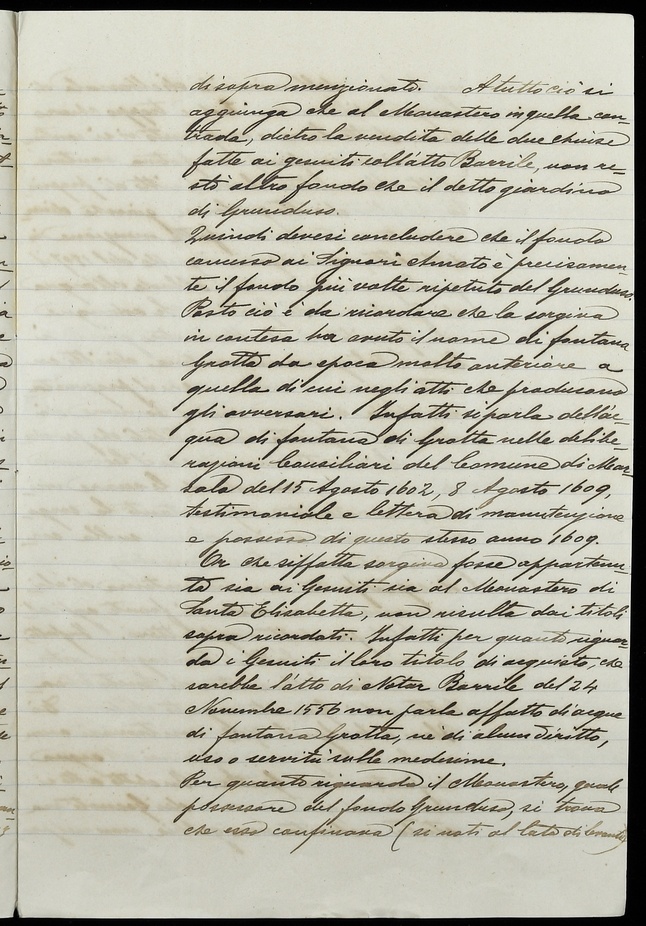 di sopra menzionato. A tutto ciò si
aggiunga che al Monastero in quella con=
trada, dietro la vendita delle due chiuse
fatte ai gesuiti coll'atto Barrile, non re=
stò altro fondo che il detto giardino
di Grunduso.
Quindi devesi concludere che il fondo
concesso ai Signori Amato è precisamen=
te il fondo più volte ripetuto del Grunduso.
Posto ciò è da ricordare che la sorgiva
in contesa ha avuto il nome di fontana
Grotta da epoca molto anteriore a
quella di cui negli atti che producono
gli avversari. Infatti si parla dell'ac=
qua di fontana di Grotta nelle delibe=
razioni Consiliari del Comune di Mar=
sala del 15 Agosto 1602, 8 Agosto 1609,
testimoniale e lettera di manutenzione
e possesso di questo stesso anno 1609.
Or che siffatta sorgiva fosse appartenu=
ta sia ai Gesuiti sia al Monastero di
Santa Elisabetta, non risulta dai titoli
sopra ricordati. Infatti per quanto riguar=
da i Gesuiti il loro titolo di acquisto, che
sarebbe l'atto di Notar Barrile del 24
Novembre 1556 non parla affatto di acque
di fontana Grotta, nè di alcun diritto,
uso o servitù sulle medesime.
Per quanto riguarda il Monastero, quale
possessore del fondo Grunduso, si trova
che esso confinava (si noti al lato di levante)